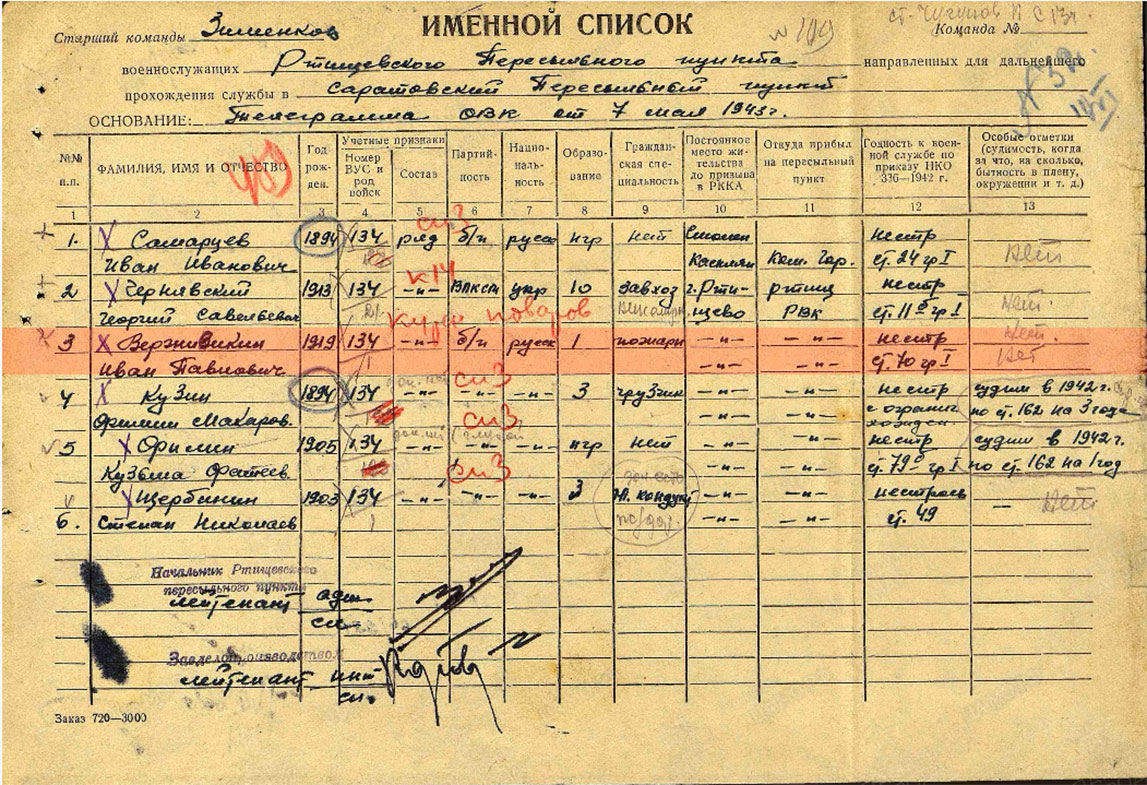 ИМЕННОЙ СПИСОК
Старший команды Зименков
Команда №
военнослужащих Ртищевского Пересыльного пункта направленных для дальнейшего
прохождения службы в Саратовский Пересыльный пункт
ОСНОВАНИЕ: Телеграмма ОВК от 7 мая 1943г.
№№ п.п. ФАМИЛИЯ, ИМЯ И ОТЧЕСТВО Год рожден. Учетные признаки Номер ВУС и род войск Состав Партий-ность Нацио-наль-ность Образо-вание Граждан-ская спе-циальность Постоянное место жи-тельства до призыва в РККА Откуда прибыл на пересыльный пункт Годность к воен-ной службе по приказу НКО 336—1942 г. Особые отметки (судимость, когда за что, на сколько, бытность в плену, окружении и т. д.)
1 2 3 4 5 6 7 8 9 10 11 12 13
1. Самарцев 1894 134 ряд б/п русс нгр нет нестр
Иван Иванович ст. 24 гр I Нет
2 Чернявский 1913 134 -"- ВЛКСМ укр 10 завхоз г. Рти- ртищ нестр
Георгий Савельевич щево РВК гр I Нет
Курсы поваров
3 Вержпвикин 1919 134 -"- б/п русск 1 пожарн -"- -"- нестр Нет
Иван Павлович -"- ст. 70 гр I Нет
4 Кузин 1894 134 3 грузчик -"- -"- нестр судим в 1942 г.
Филипп Макаров. -"- с огранич. по ст. 162 на 3 года
5 Филин 1905 134 -"- -"- -"- нгр нет -"- -"- нестр судим в 1942 г.
Кузьма Фатеев. -"- ст. 79 гр I по ст. 162 на 1 год
Щербинин 1903 134 -"- -"- -"- 3 кондукт -"- -"- нестроев — Нет
6. Степан Николаев -"- -"- ст. 49
Начальник Ртищевского
пересыльного пункта
лейтенант адм
сл.
Завделопроизводством
лейтенант инт
сл.
Заказ 720—3000